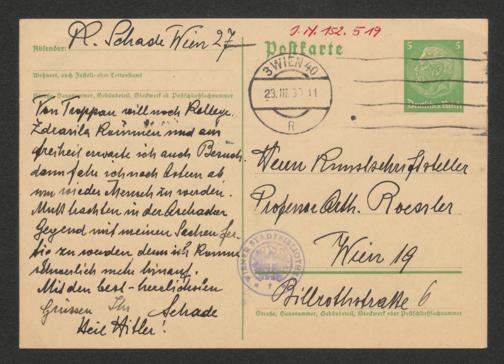 Absender: R. Schade Wien 27
Wohnort, auch Zustell- oder Leitpostamt
Straße, Hausnummer, Gebäudeteil, Stockwerk od. Postschließfachnummer
Von Troppau will noch Kollege
Zdrazila kommen und aus
freiheit erwarte ich auch Besuch
dann fahr ich nach Ostern ab
um wieder Mensch zu werden.
Muß trachten in der Aschacher
Gegend mit meinen Sachen fer-
tig zu werden denn ich komme
schwerlich mehr hinauf.
Mit den best-herzlichsten
Grüssen Ihr Schade
Heil Hitler!
J.N. 152.519
Postkarte
3 WIEN 40
23.III.39 11
R
5 5
Deutsches Reich
Herrn Kunstschriftsteller
Professor Arth. Roessler
Wien 19
Billrothstraße 6
Straße, Hausnummer, Gebäudeteil, Stockwerk oder Postschließfachnummer
WIENER STADTBIBLIOTHEK